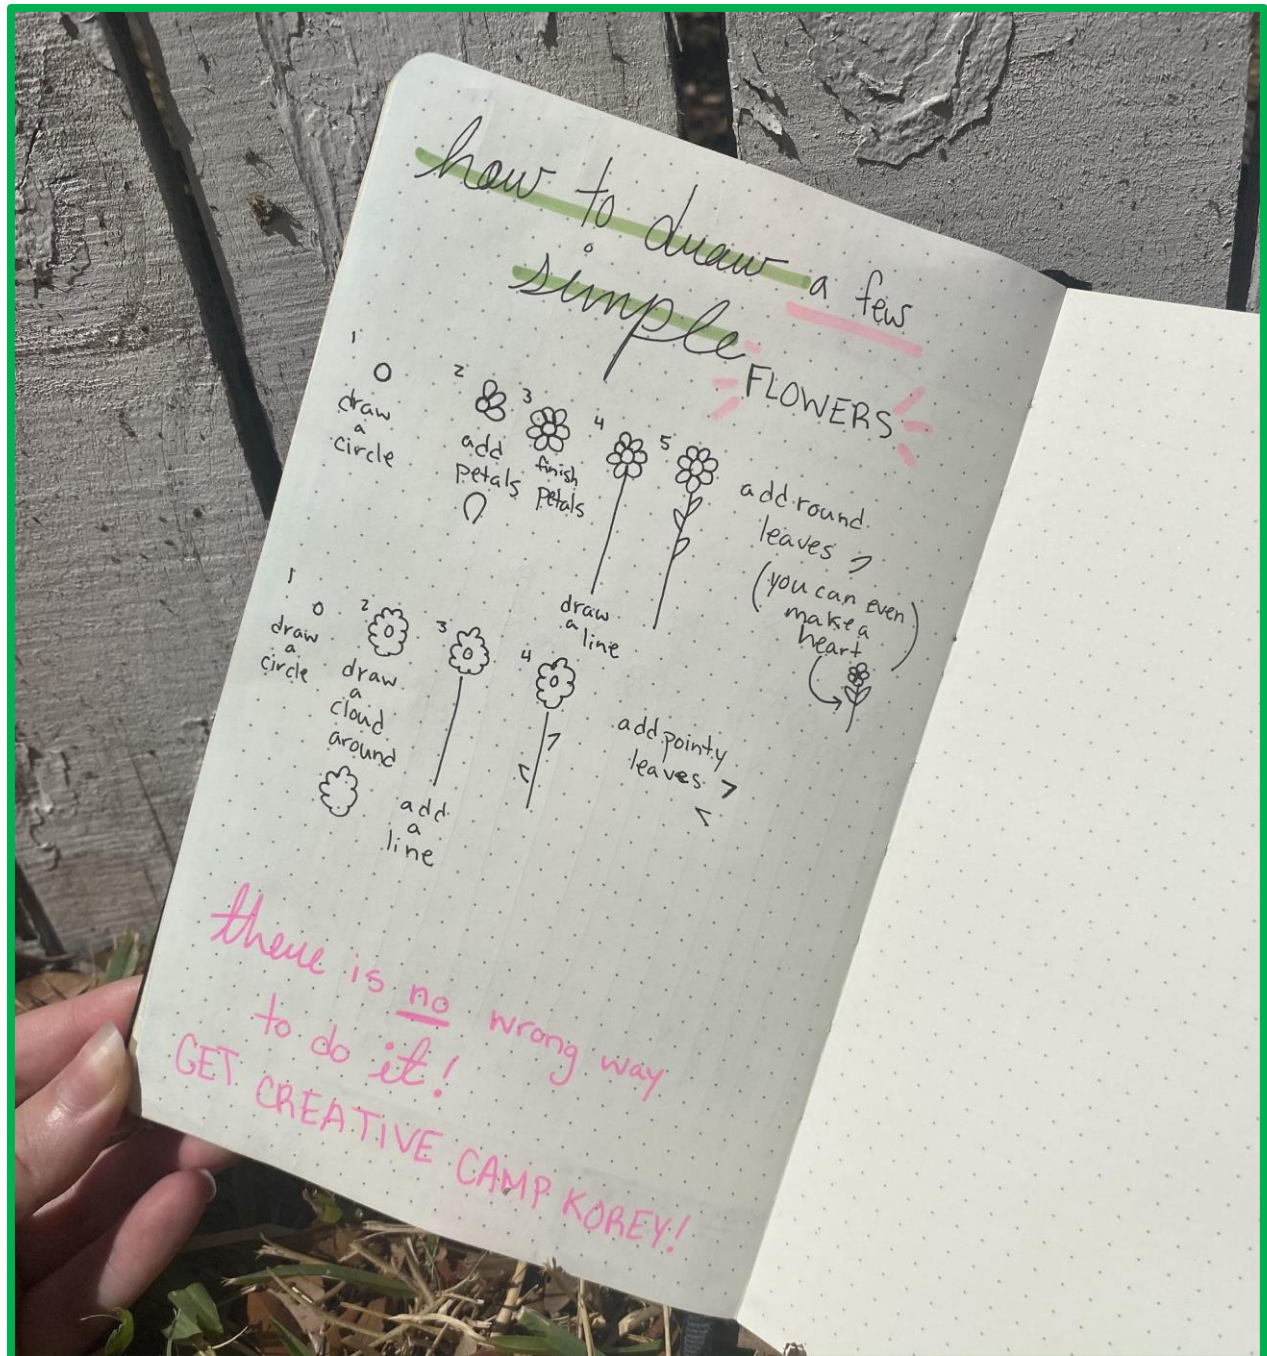 how to draw a few
simple
FLOWERS
1
draw
a
circle
2
add
petals
3
finish
petals
4
draw
a line
5
add round
leaves
(you can even
make a
heart)
1
draw
a
circle
2
draw
a
cloud
around
3
add
a
line
4
add pointy
leaves
there is no wrong way
to do it!
GET CREATIVE CAMP KOREY!